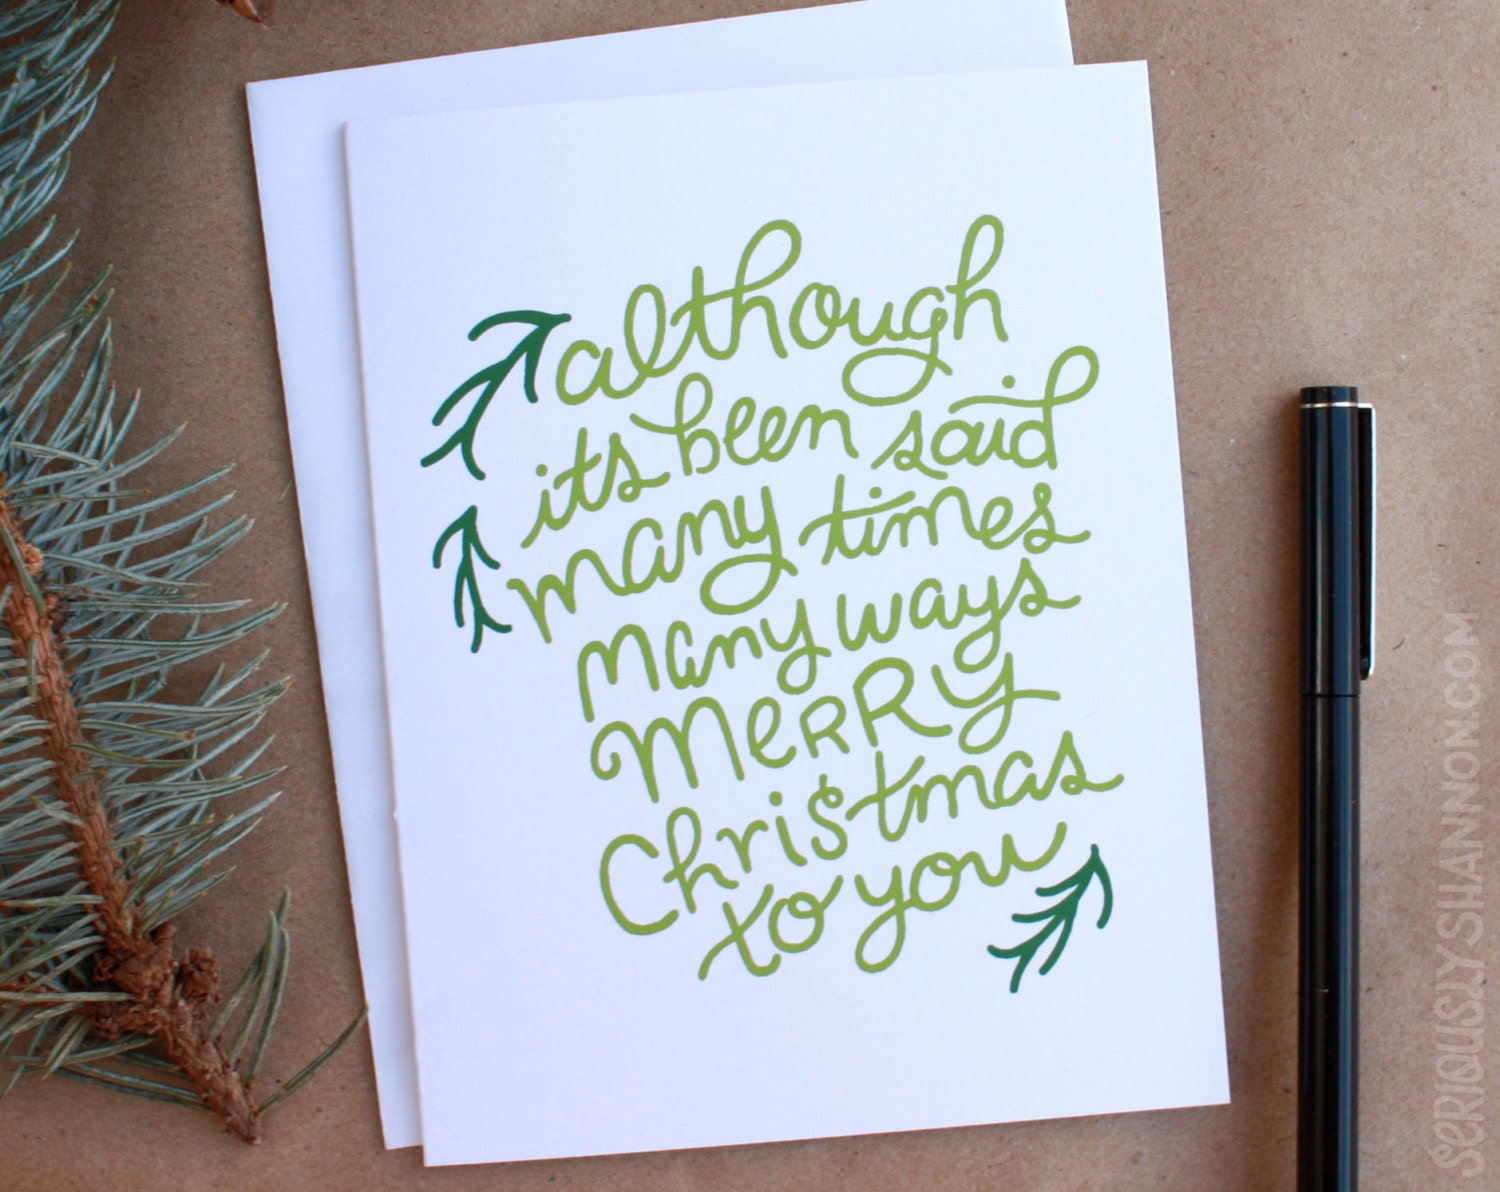 although
its been said
many times
many ways
MeRRy
Christmas
to you
SERIOUSLYSHANNON.COM